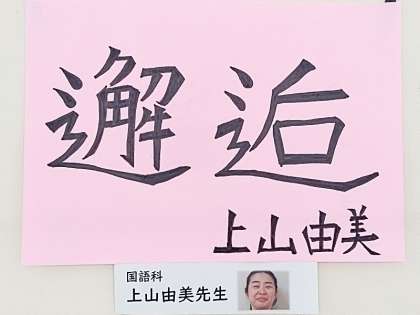 邂逅
上山由美
国語科
上山由美先生